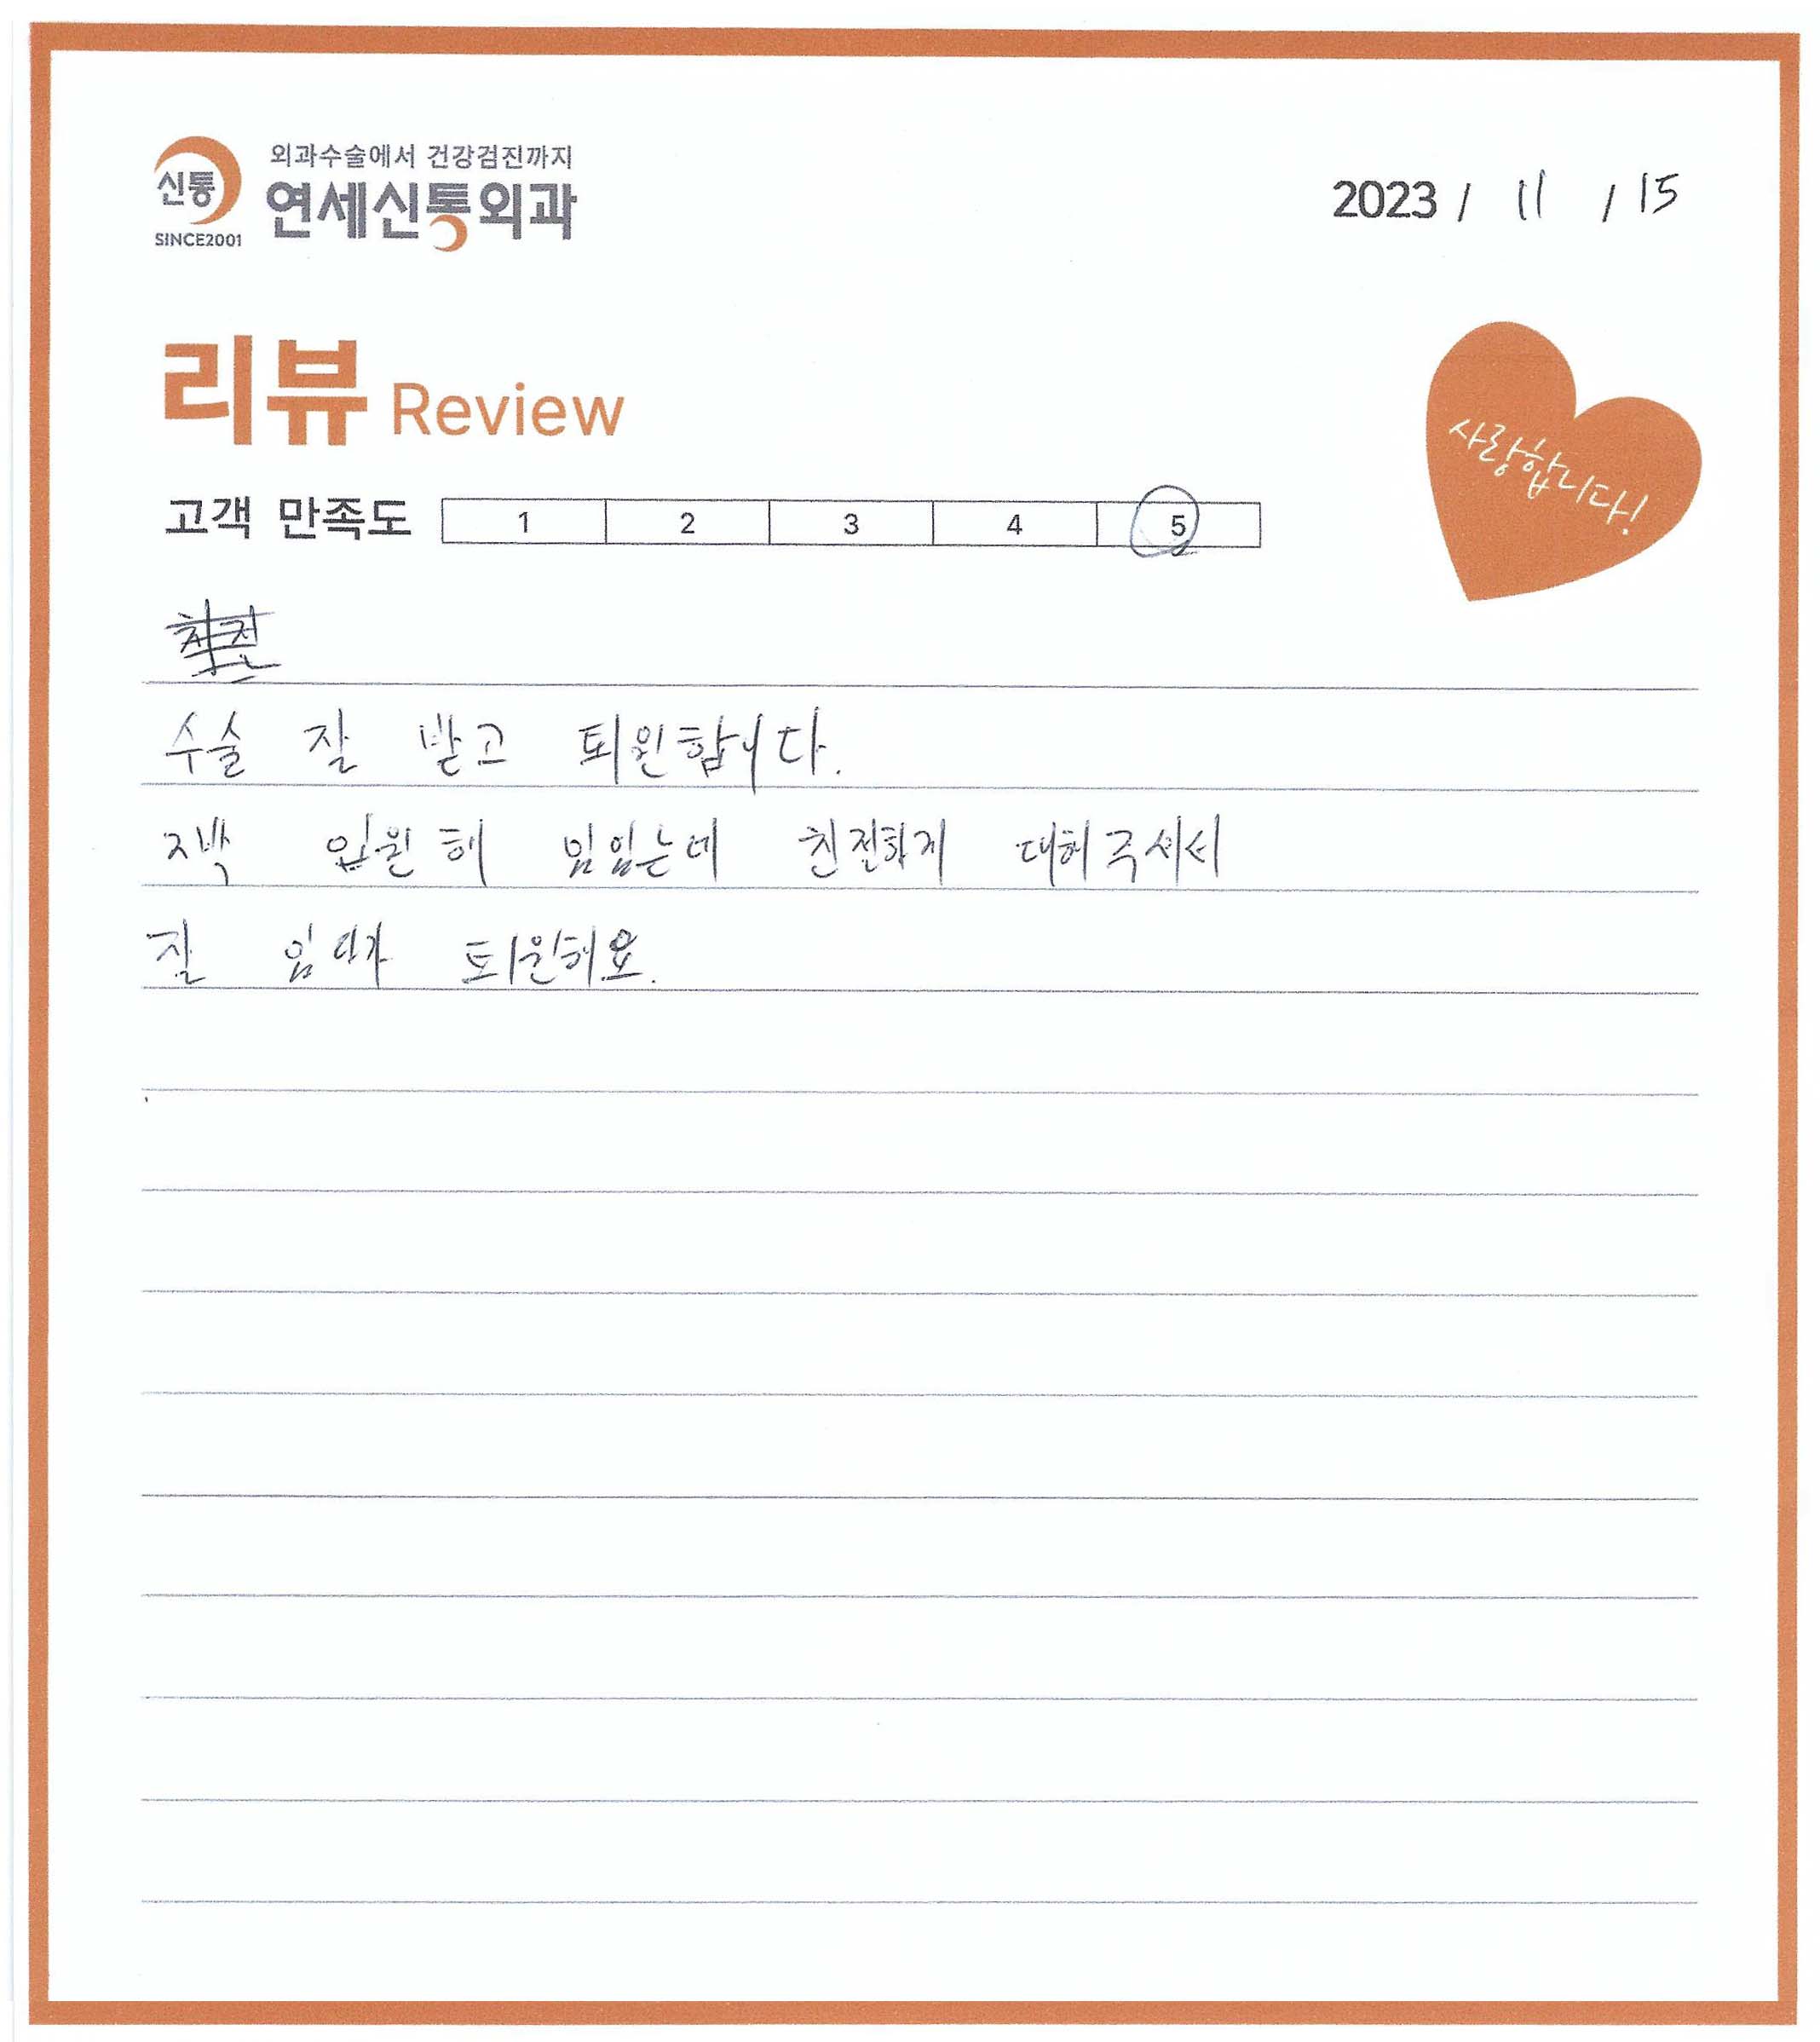 외과수술에서 건강검진까지
신통 연세신통외과
SINCE2001
2023 / 11 / 15
리뷰 Review
사랑합니다!
고객 만족도 1 2 3 4 5
수술 잘 받고 퇴원합니다.
2박 입원해 있었는데 친절하게 대해주셔서
잘 있다가 퇴원해요.